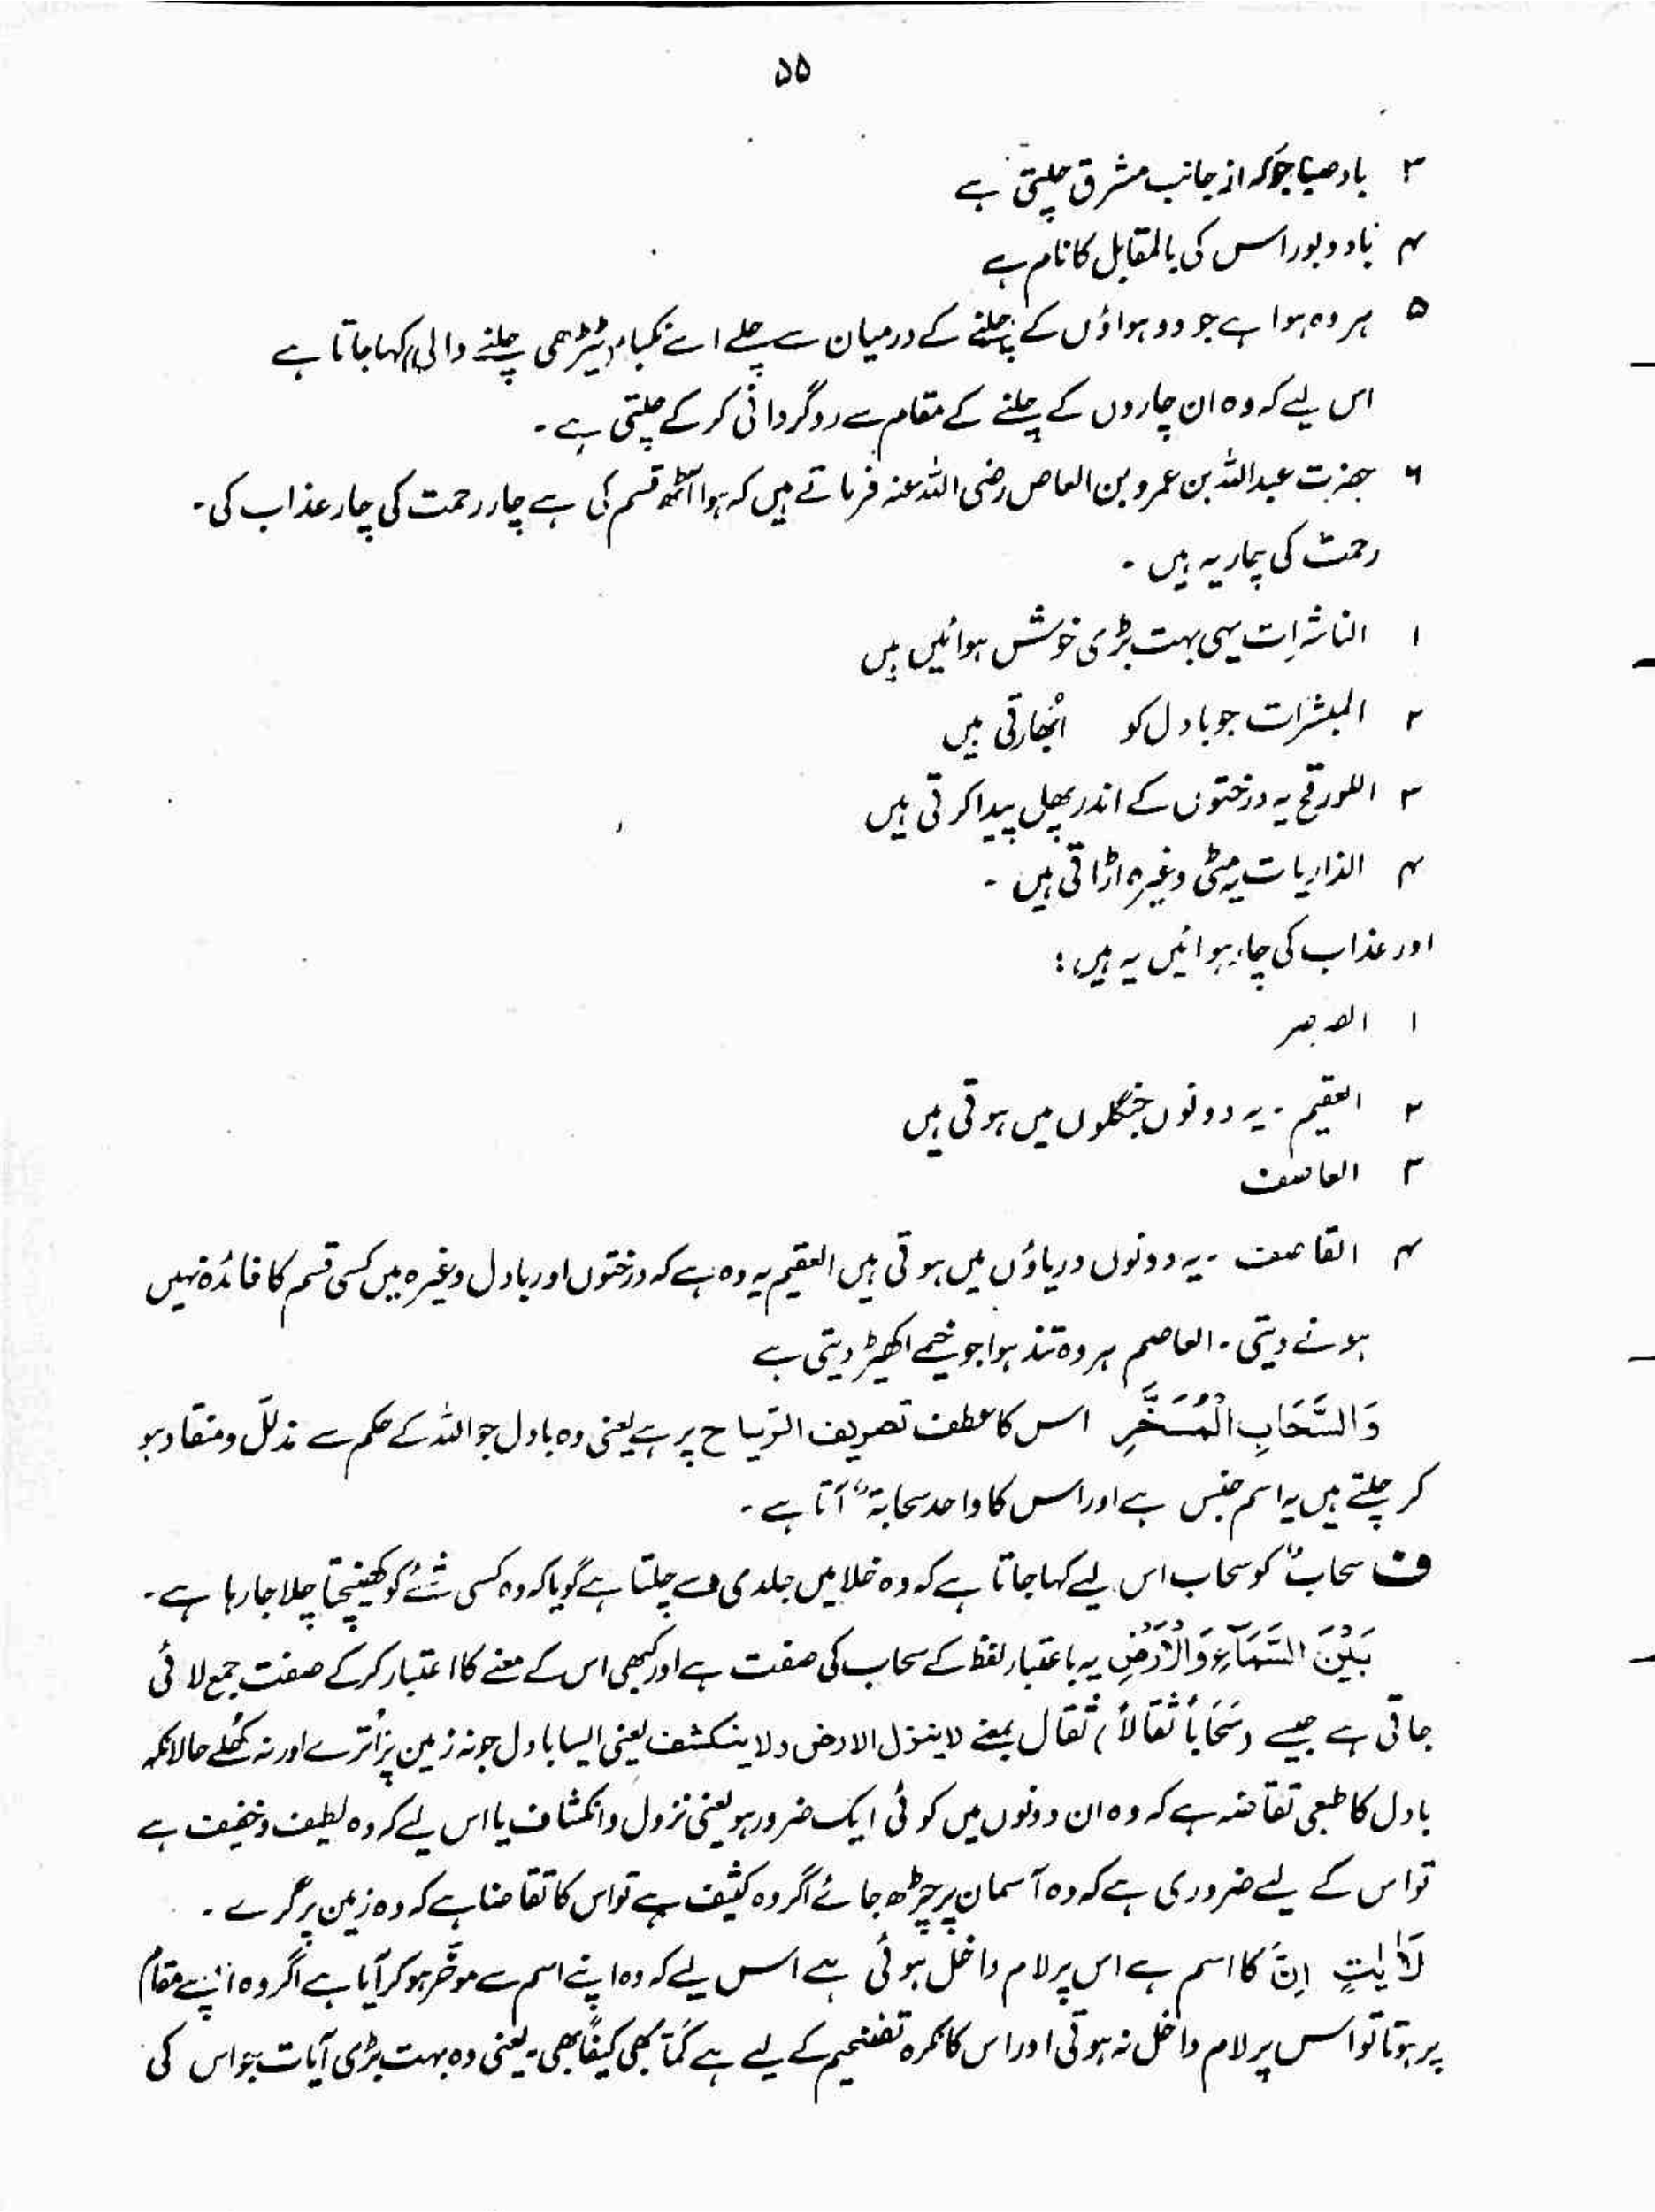 ۵۵
۳ باد صبا جو کہ از جانب مشرق چلتی ہے
۴ باد دبور اس کی بالمقابل کا نام ہے
۵ ہر وہ ہوا ہے جو دو ہواؤں کے چلنے کے درمیان سے چلے اسے نکباء (ٹیڑھی چلنے والی) کہا جاتا ہے
اس لیے کہ وہ ان چاروں کے چلنے کے مقام سے روگردانی کر کے چلتی ہے۔
۶ حضرت عبداللہ بن عمرو بن العاص رضی اللہ عنہ فرماتے ہیں کہ ہوا آٹھ قسم کی ہے چار رحمت کی چار عذاب کی۔
رحمت کی چار یہ ہیں۔
۱ الناشرات یہی بہت بڑی خوش ہوائیں ہیں
۲ المبشرات جو بادل کو ابھارتی ہیں
۳ اللورقح یہ درختوں کے اندر پھل پیدا کرتی ہیں
۴ الذاریات یہ مٹی وغیرہ اڑاتی ہیں۔
اور عذاب کی چار ہوائیں یہ ہیں:
۱ الصرصر
۲ العقیم۔ یہ دونوں جنگلوں میں ہوتی ہیں
۳ العاصف
۴ القاصف۔ یہ دونوں دریاؤں میں ہوتی ہیں العقیم یہ وہ ہے کہ درختوں اور بادل وغیرہ میں کسی قسم کا فائدہ نہیں
ہونے دیتی۔ العاصم ہر وہ تند ہوا جو خیمے اکھیڑ دیتی ہے
وَالسَّحَابِ الْمُسَخَّرِ اس کا عطف تصریف الریاح پر ہے یعنی وہ بادل جو اللہ کے حکم سے مذلل و منقاد ہو
کر چلتے ہیں یہ اسم جنس ہے اور اس کا واحد سحابۃٌ آتا ہے۔
ف سحابٌ کو سحاب اس لیے کہا جاتا ہے کہ وہ خلا میں جلدی سے چلتا ہے گویا کہ وہ کسی شئے کو کھینچتا چلا جا رہا ہے۔
بَیْنَ السَّمَآءِ وَالْاَرْضِ یہ باعتبار لفظ کے سحاب کی صفت ہے اور کبھی اس کے معنے کا اعتبار کر کے صفت جمع لائی
جاتی ہے جیسے (سَحَابًا ثِقَالًا) ثقال بمعنے لا ینزل الارض ولا ینکشف یعنی ایسا بادل جو نہ زمین پر اُترے اور نہ کھُلے حالانکہ
بادل کا طبعی تقاضہ ہے کہ وہ ان دونوں میں کوئی ایک ضرور ہو یعنی نزول و انکشاف یا اس لیے کہ وہ لطیف و خفیف ہے
تو اس کے لیے ضروری ہے کہ وہ آسمان پر چڑھ جائے اگر وہ کثیف ہے تو اس کا تقاضا ہے کہ وہ زمین پر گرے۔
لَاٰیٰتٍ اِنَّ کا اسم ہے اس پر لام داخل ہوئی ہے اس لیے کہ وہ اپنے اسم سے موخّر ہو کر آیا ہے اگر وہ اپنے مقام
پر ہوتا تو اس پر لام داخل نہ ہوتی اور اس کا نکرہ تفخیم کے لیے ہے کمّاً بھی کیفاً بھی۔ یعنی وہ بہت بڑی آیات جو اس کی